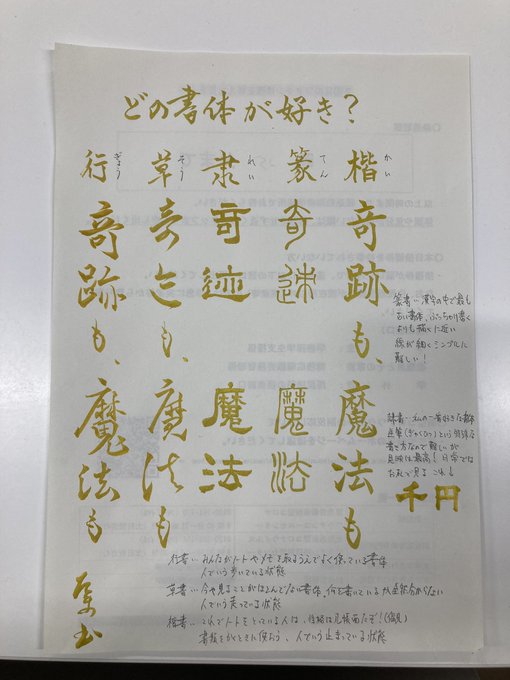 どの書体が好き?
楷 かい
竒跡も、魔法も
篆 てん
竒迹
魔法
隶 れい
竒迹
魔法
草 そう
竒跡も、魔法も
行 ぎょう
竒跡も、魔法も
篆書…漢字の中で最も
古い書体、ぶっちゃけ書く
よりも描くに近い
線が細くシンプルに
難しい!
隷書…私の一番好きな書体
逆筆(ぎゃくひつ)という特殊な
書き方なので難しいが
見映は最高!日常では
お札で見る これ↓
千円
行書…みんながノートやメモを取るうえでよく使っている書体
人でいう歩いている状態
草書…今や見ることがほとんどない書体、何を書いているか全然分からない
人でいう走っている状態
楷書…これでノートをとっている人は、性格は几帳面だぞ!(偏見)
書類をかくときに使おう、人でいう止まっている状態